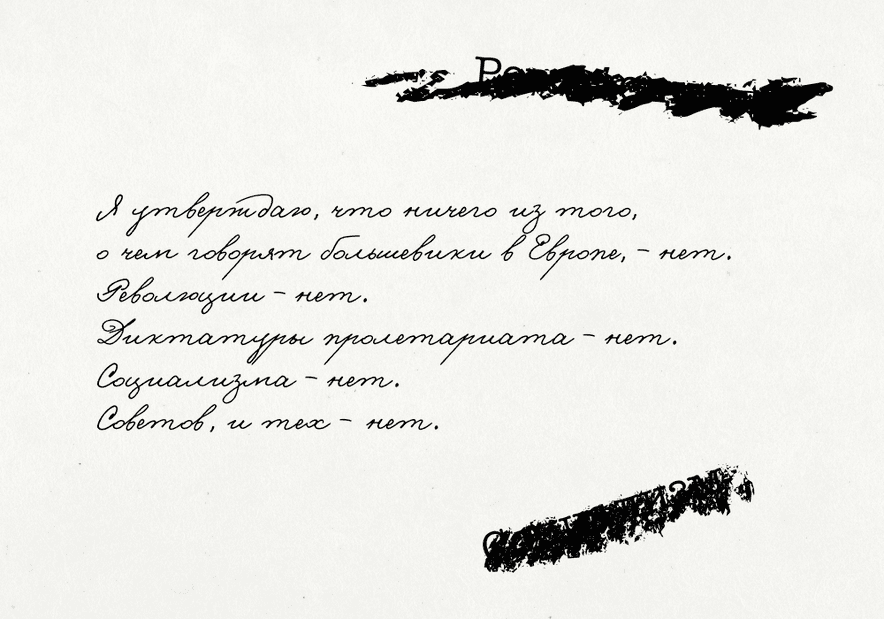 Я утверждаю, что ничего из того,
о чем говорят большевики в Европе, – нет.
Революции – нет.
Диктатуры пролетариата – нет.
Социализма – нет.
Советов, и тех – нет.